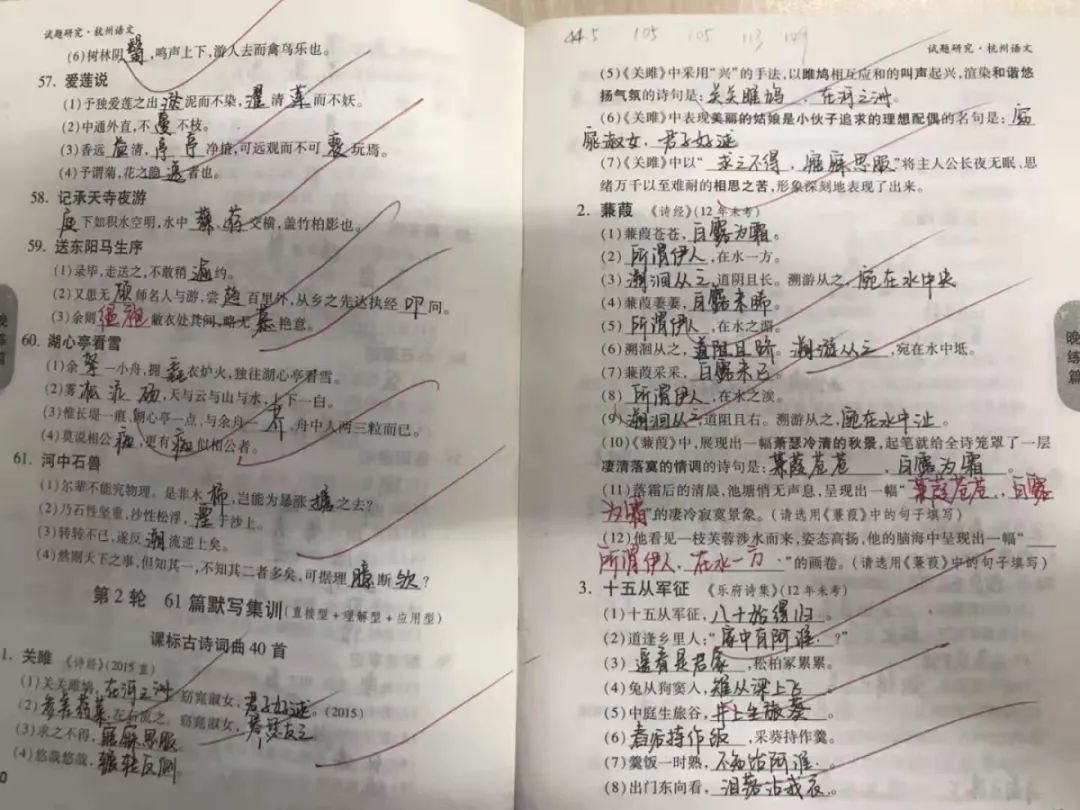 试题研究·杭州语文
(6)树林阴翳，鸣声上下，游人去而禽鸟乐也。
57. 爱莲说
(1)予独爱莲之出淤泥而不染，濯清涟而不妖。
(2)中通外直，不蔓不枝。
(3)香远益清，亭亭净植，可远观而不可亵玩焉。
(4)予谓菊，花之隐逸者也。
58. 记承天寺夜游
庭下如积水空明，水中藻、荇交横，盖竹柏影也。
59. 送东阳马生序
(1)录毕，走送之，不敢稍逾约。
(2)又患无硕师名人与游，尝趋百里外，从乡之先达执经叩问。
(3)余则缊袍敝衣处其间，略无慕艳意。
60. 湖心亭看雪
(1)余拏一小舟，拥毳衣炉火，独往湖心亭看雪。
(2)雾凇沆砀，天与云与山与水，上下一白。
(3)惟长堤一痕、湖心亭一点、与余舟一芥，舟中人两三粒而已。
(4)莫说相公痴，更有痴似相公者。
61. 河中石兽
(1)尔辈不能究物理。是非木杮，岂能为暴涨携之去？
(2)乃石性坚重，沙性松浮，湮于沙上。
(3)转转不已，遂反溯流逆上矣。
(4)然则天下之事，但知其一，不知其二者多矣，可据理臆断欤？
第2轮 61篇默写集训(直接型+理解型+应用型)
课标古诗词曲40首
1. 关雎 《诗经》(2015
(1)关关雎鸠，在河之洲。窈窕淑女，君子好逑。(2015)
(2)参差荇菜，左右流之。窈窕淑女，琴瑟友之
(3)求之不得，寤寐思服
(4)悠哉悠哉，辗转反侧。
晚练篇
445 105 105 113 109
试题研究·杭州语文
(5)《关雎》中采用“兴”的手法，以雎鸠相互应和的叫声起兴，渲染和谐悠
扬气氛的诗句是：关关雎鸠，在河之洲。
(6)《关雎》中表现美丽的姑娘是小伙子追求的理想配偶的名句是：窈
窕淑女，君子好逑
(7)《关雎》中以“求之不得，寤寐思服”将主人公长夜无眠、思
绪万千以至难耐的相思之苦，形象深刻地表现了出来。
2. 蒹葭 《诗经》(12年未考)
(1)蒹葭苍苍，白露为霜。
(2)所谓伊人，在水一方。
(3)溯洄从之，道阻且长。溯游从之，宛在水中央
(4)蒹葭萋萋，白露未晞。
(5)所谓伊人，在水之湄。
(6)溯洄从之，道阻且跻。溯游从之，宛在水中坻。
(7)蒹葭采采，白露未已。
(8)所谓伊人，在水之涘。
(9)溯洄从之，道阻且右。溯游从之，宛在水中沚。
(10)《蒹葭》中，展现出一幅萧瑟冷清的秋景，起笔就给全诗笼罩了一层
凄清落寞的情调的诗句是：蒹葭苍苍，白露为霜。
(11)落霜后的清晨，池塘悄无声息，呈现出一幅“蒹葭苍苍，白露
为霜”的凄冷寂寞景象。(请选用《蒹葭》中的句子填写)
(12)他看见一枝芙蓉涉水而来，姿态高扬，他的脑海中呈现出一幅“
所谓伊人，在水一方。”的画卷。(请选用《蒹葭》中的句子填写)
3. 十五从军征 《乐府诗集》(12年未考)
(1)十五从军征，八十始得归。
(2)道逢乡里人：“家中有阿谁？”
(3)遥看是君家，松柏冢累累。
(4)兔从狗窦入，雉从梁上飞。
(5)中庭生旅谷，井上生旅葵。
(6)舂谷持作饭，采葵持作羹。
(7)羹饭一时熟，不知饴阿谁。
(8)出门东向看，泪落沾我衣。
晚练篇